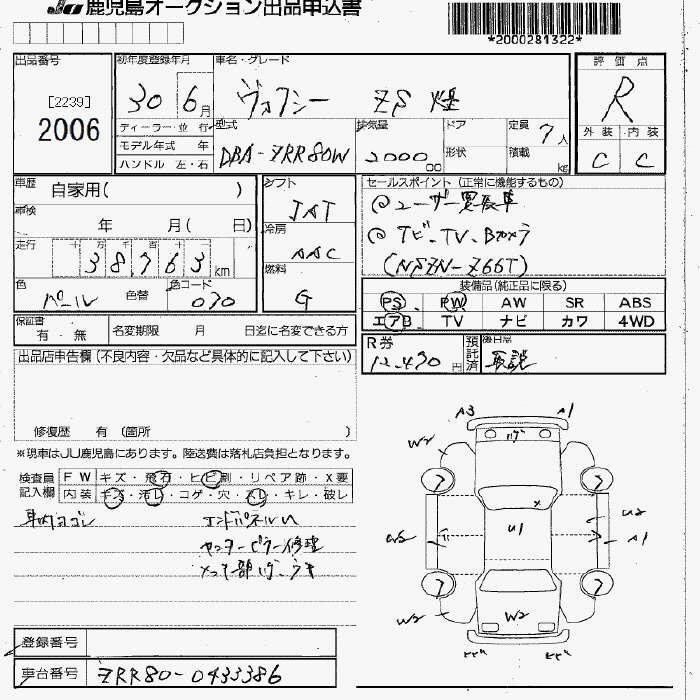 JU 鹿児島オークション出品申込書
*2000281322*
出品番号
[2239]
2006
初年度登録年月
30 6月
車名・グレード
ヴォクシー ZS 煌
評価点
R
外装 内装
C C
ディーラー・並行
モデル年式 年
ハンドル 左・右
型式
DBA-ZRR80W
排気量
2000
ドア
形状
定員 7人
積載 kg
車歴 自家用( )
車検 年 月( 日)
走行 十 万 千 百 十
38763 km
色 パール 色替
色コード 070
シフト
IAT
冷房
AAC
燃料
G
セールスポイント (正常に機能するもの)
ユーザー買取車
ナビ、TV、Bカメラ
(NSZN-Z66T)
装備品(純正品に限る)
PS PW AW SR ABS
エアB TV ナビ カワ 4WD
保証書 有・無
名変期限 月 日迄に名変できる方
R券 12,430円
預託済
後日品 取説
出品店申告欄(不良内容・欠品など具体的に記入して下さい)
修復歴 有 (箇所 )
※現車はJU鹿児島にあります。陸送費は落札店負担となります。
検査員記入欄
FW キズ・飛石・ヒビ・刷・リペア跡・X要
内装 キズ・汚レ・コゲ・穴・スレ・キレ・破レ
車内ヨゴレ
エンドパネルU
センターピラー修理
A3 A1
W2
U1
U2
A1
W2
W2
W2
登録番号
車台番号 ZRR80-0433386